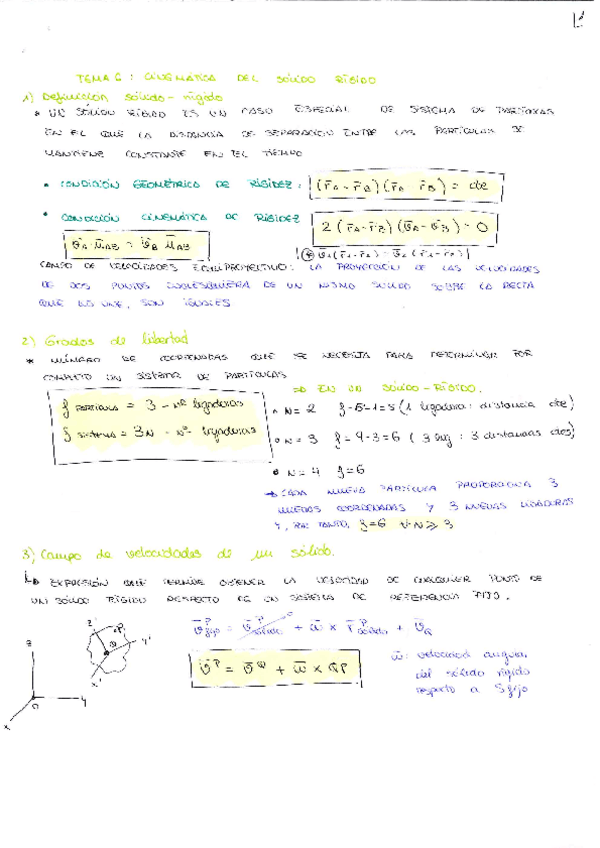 TEMA 6: CINEMÁTICA DEL SÓLIDO RÍGIDO
1) Definición sólido-rígido
* UN SÓLIDO RÍGIDO ES UN CASO ESPECIAL DE SISTEMA DE PARTÍCULAS
EN EL QUE LA DISTANCIA DE SEPARACIÓN ENTRE LAS PARTÍCULAS SE
MANTIENE CONSTANTE EN EL TIEMPO
• CONDICIÓN GEOMÉTRICA DE RIGIDEZ: (r̄A - r̄B)(r̄A - r̄B) = cte
• CONDICIÓN CINEMÁTICA DE RIGIDEZ 2(r̄A - r̄B)(v̄A - v̄B) = 0
v̄A ū AB = v̄B ū AB
CAMPO DE VELOCIDADES EQUIPROYECTIVO: LA PROYECCIÓN DE LAS VELOCIDADES
DE DOS PUNTOS CUALESQUIERA DE UN MISMO SÓLIDO SOBRE LA RECTA
QUE LOS UNE, SON IGUALES
2) Grados de libertad
* NÚMERO DE COORDENADAS QUE SE NECESITA PARA DETERMINAR POR
COMPLETO UN SISTEMA DE PARTÍCULAS
⇒ EN UN SÓLIDO-RÍGIDO.
f PARTÍCULAS = 3 - nº ligaduras
f SISTEMAS = 3N - nº ligaduras
• N = 2 f = 6 - 1 = 5 (1 ligadura: distancia cte)
• N = 3 f = 9 - 3 = 6 (3 lig: 3 distancias ctes)
• N = 4 f = 6
→ CADA NUEVA PARTÍCULA PROPORCIONA 3
NUEVAS COORDENADAS Y 3 NUEVAS LIGADURAS
Y, POR TANTO, f = 6 ∀ N ⩾ 3
3) Campo de velocidades de un sólido.
↳ EXPRESIÓN QUE PERMITE OBTENER LA VELOCIDAD DE CUALQUIER PUNTO DE
UN SÓLIDO RÍGIDO RESPECTO DE UN SISTEMA DE REFERENCIA FIJO.
v̄ᴾ fijo = v̄ᴾ sólido + ω̄ × r̄ᴾ sólido + v̄Q
v̄ᴾ = v̄Q + ω̄ × QP
ω̄: velocidad angular
del sólido rígido
respecto a S fijo
z
y
x
O
z'
y'
x'
P